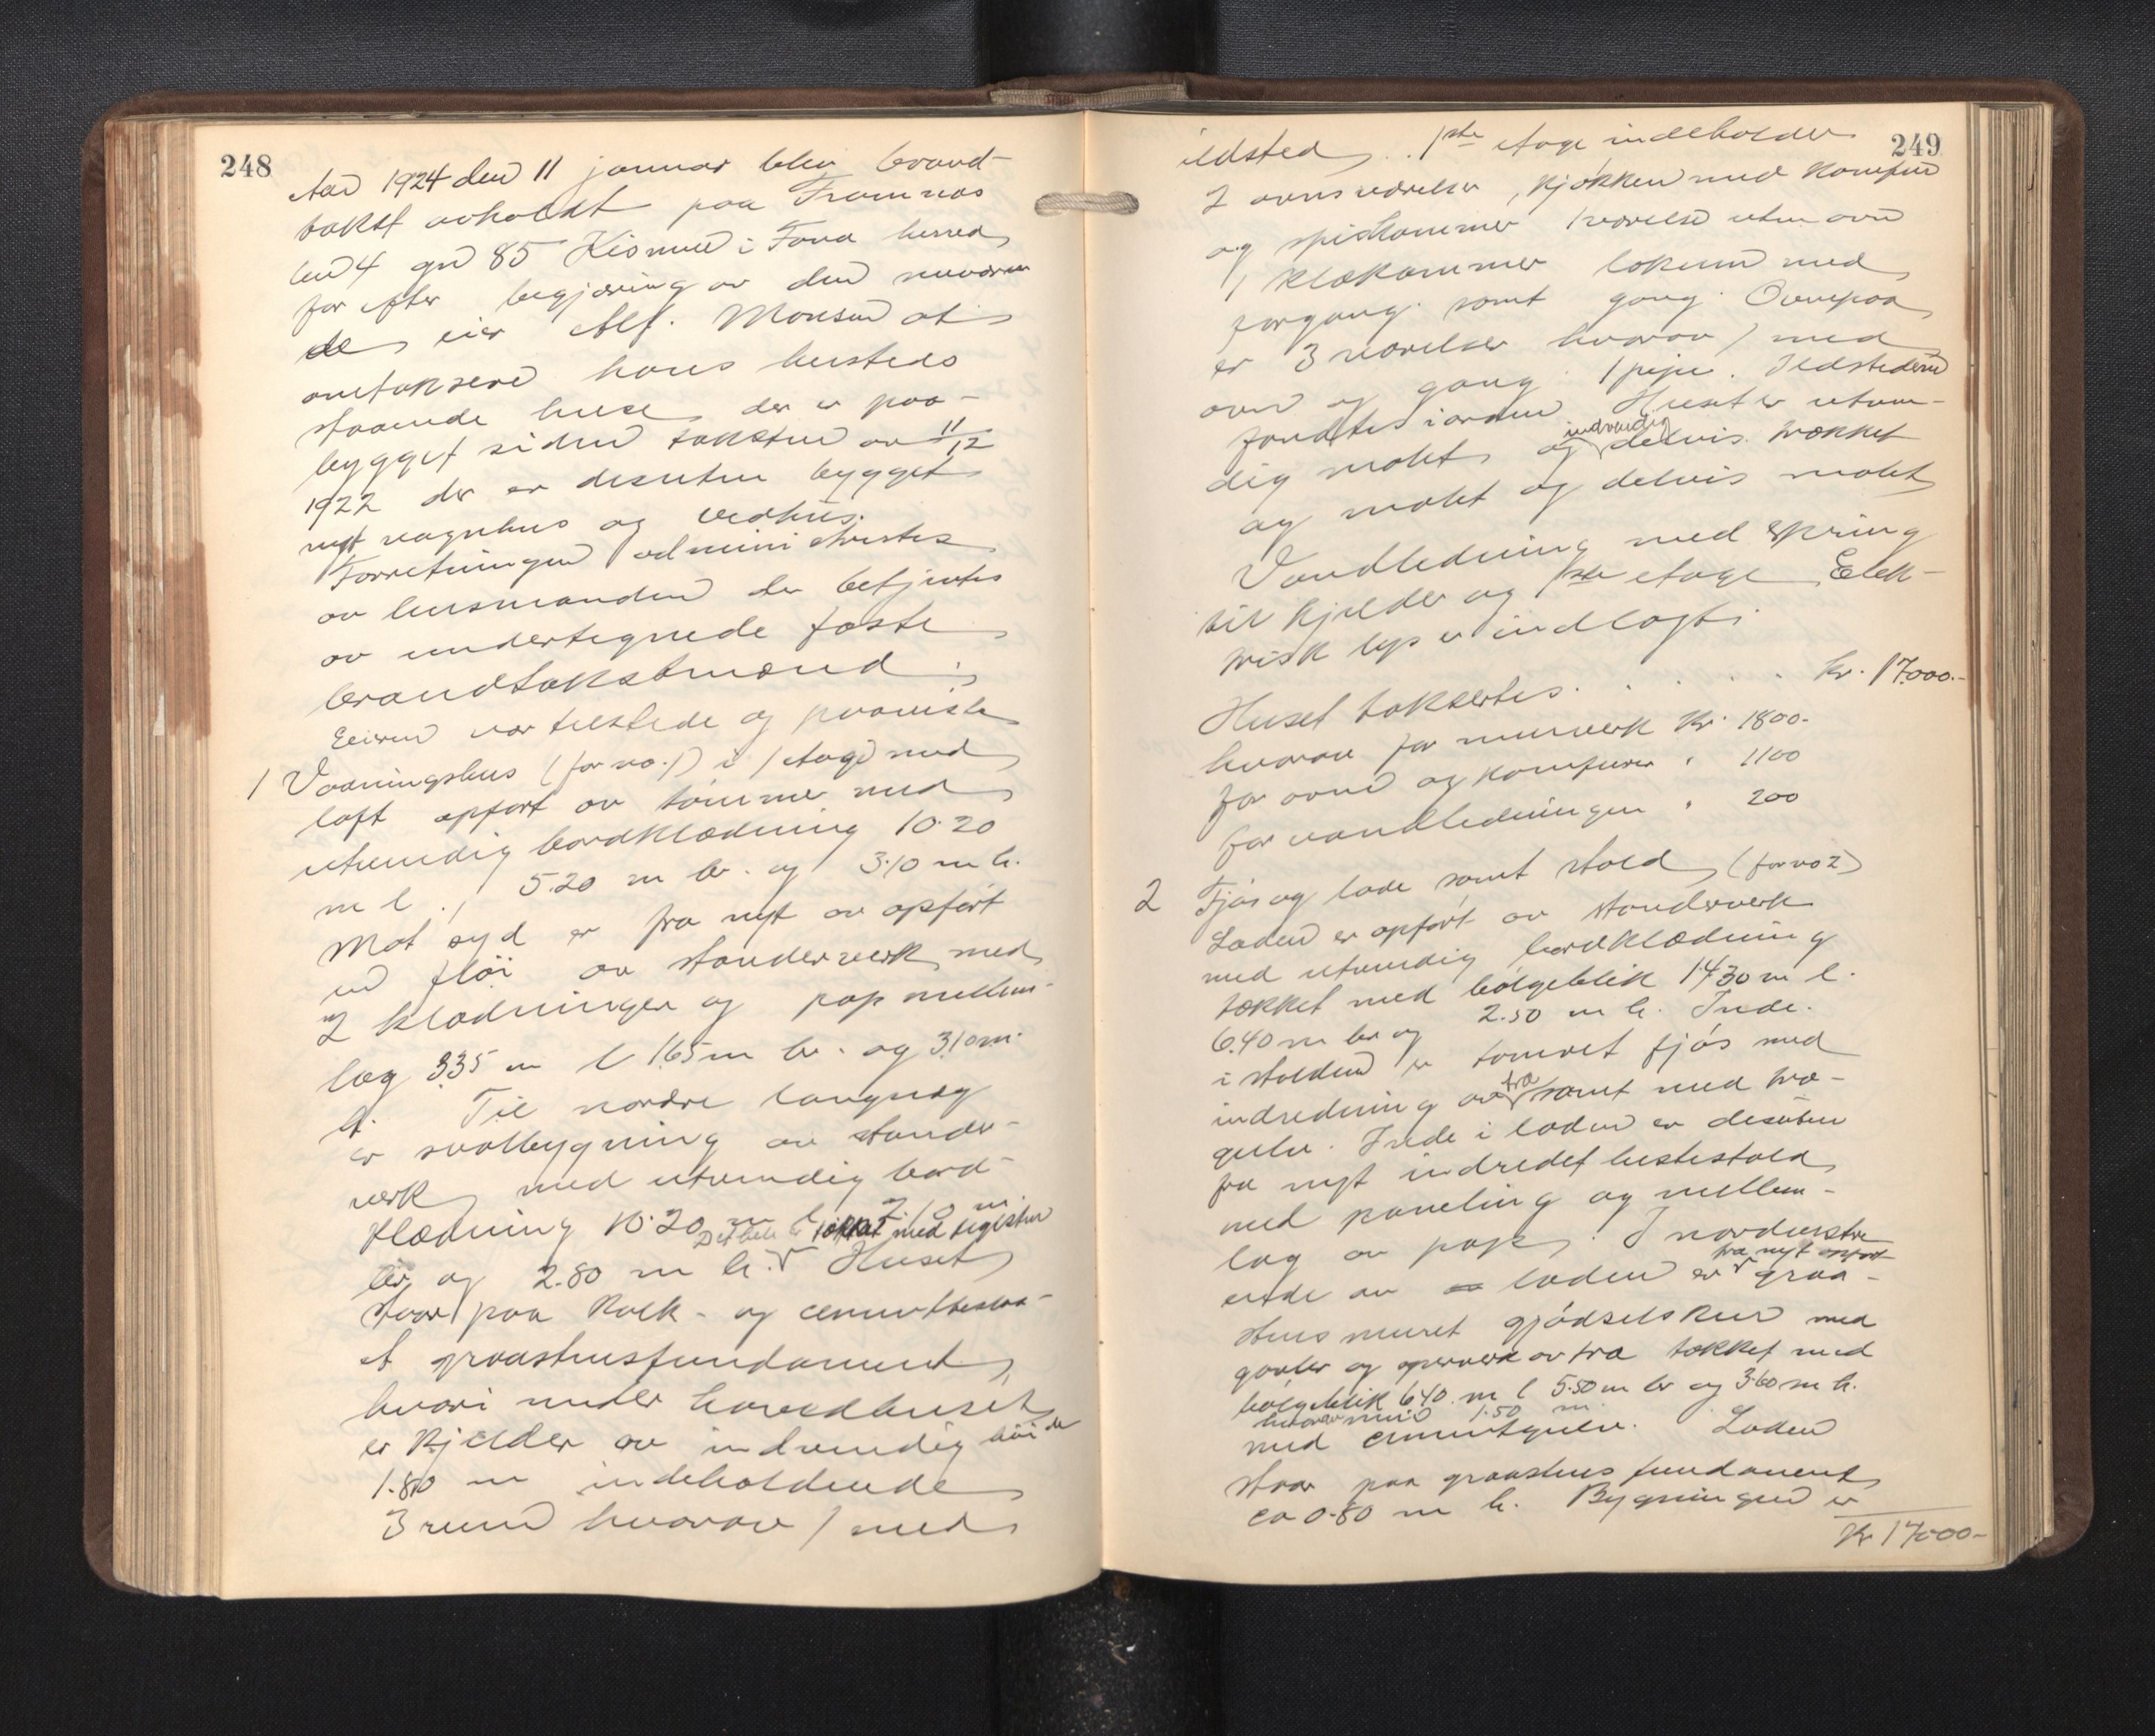 248
Aar 1924 den 11 januar blev brand-
takst avholdt paa Framnæs
bn 4 gn 85 Kismul i Fana herred
for efter begjæring av den nuværen
de eier Alf. Monsen at
omtaksere hans husteds
staaende huse der er paa-
bygget siden taksten av 11/12
1922 der er desuten bygget
nyt vagnhus og vedhus.
Forretningen administrertes
av lensmanden der betjentes
av undertegnede faste
brandtakstmænd.
Eieren var tilstede og paaviste
1 Vaaningshus (før no. 1) i 1 etage med
loft opført av tømmer med
utvendig bordklædning 10.20
m l., 5.20 m br. og 3.10 m h.
Mot syd er fra nyt av opført
en fløi av stenderverk med
2 klædninger og pap mellem-
læg 3.35 m l 1.65 m br. og 3.10 m.
h. Til nordre langvæg
er svalbygning av stender-
verk med utvendig bord-
klædning 10.20 m l 2.10 m
Det hele er tækket med teglsten
br. og 2.80 m h. Huset
staar paa kalk- og cement
et graastensfundament,
hvori under hovedhuset
er kjelder av indvendig høide
1.80 m indeholdende
3 rum hvorav 1 med
249
ildsted. 1ste etage indeholder
2 ovnsværelser, kjøkken med komfur
og spiskammer 1 værelse uten ovn
1 klækammer lokum med
forgang samt gang. Ovenpaa
er 3 værelser hvorav 1 med
ovn og gang. 1 pipe. Ildstederne
fandtes i orden. Huset er utven-
indvendig
dig malt og delvis trækket
og malt og delvis malt
Vandledning med spring
til kjelder og 1ste etage. Elek-
trisk lys er indlagt.
Huset taksertes. . . . . kr. 17000.-
hvorav for murverk kr. 1800.-
for ovne og komfurer " 1100
for vandledningen " 200
2 Fjøs og lade samt stald (før no 2)
Laden er opført av stenderverk
med utvendig bordklædning
tækket med bølgeblik 14.30 m l.
6.40 m br og 2.50 m h. Inde.
i stalden er tømret fjøs med
træ
indredning av samt med træ-
gulv. Inde i laden er desuten
fra nyt indredet hestestald
med paneling og mellem-
læg av pap. I nordvestre
fra nyt opført
ende av laden er graa-
stensmuret gjødselskur med
gavler og oververk av træ tækket med
bølgeblik 6.40 m l 5.50 m br og 3.60 m h.
hvorav mur 1.50 m
med cementgulv. Laden
staar paa graastens fundament
ca 0.80 m h. Bygningen er
Kr 17000-